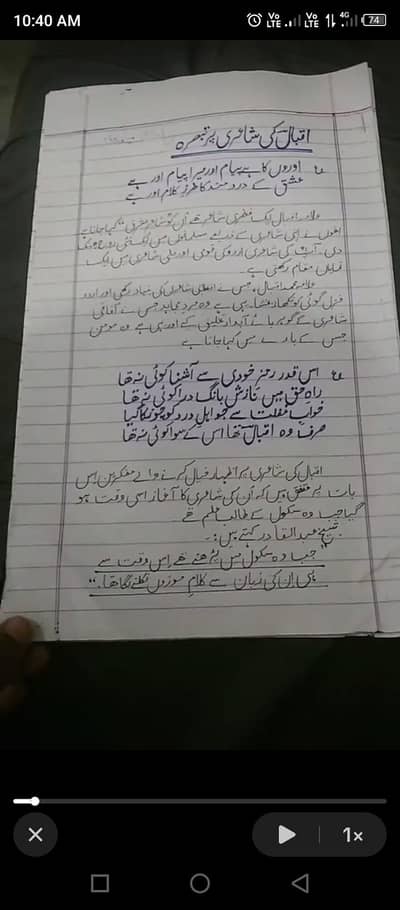 10:40 AM
Vo LTE Vo LTE 4G 74
اقبال کی شاعری پر تبصرہ
اوروں کا ہے پیام اور میرا پیام اور ہے
عشق کے درد مند کا طرز کلام اور ہے
علامہ اقبال ایک فطری شاعر تھے ان کو شاعر مشرق بھی کہا جاتا ہے
انھوں نے اپنی شاعری کے ذریعے مسلمانوں میں ایک نئی روح پھونک
دی۔ آپ کی شاعری اردو کی قومی اور ملی شاعری میں ایک
مقام رکھتی ہے۔
علامہ محمد اقبال جس نے شاعری کی بنیاد رکھی اور اردو
غزل گوئی کو نکھار بخشا۔ یہی ہے وہ مرد مجاہد جس نے آفاقی
شاعری کے گوہر ہائے آبدار تخلیق کیے اور یہی ہے وہ مومن
جس کے بارے میں کہا جاتا ہے
اس قدر رمز خودی سے آشنا کوئی نہ تھا
راہ حق میں نازش بانگ درا کوئی نہ تھا
خواب غفلت سے جو اہل درد کو چونکا گیا
صرف وہ اقبال تھا اس کے سوا کوئی نہ تھا
اقبال کی شاعری پر اظہار خیال کرنے والے مفکرین اس
بات پر متفق ہیں کہ ان کی شاعری کا آغاز اسی وقت ہو
گیا جب وہ سکول کے طالب علم تھے
شیخ عبدالقادر کہتے ہیں:۔
"جب وہ سکول میں پڑھتے تھے اس وقت سے
ہی ان کی زبان سے کلام موزوں نکلنے لگا تھا۔"
1×